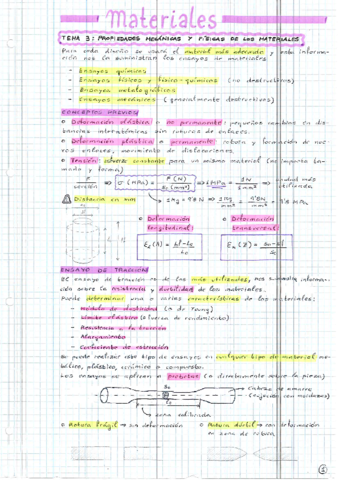 Materiales
TEMA 3: PROPIEDADES MECÁNICAS Y FÍSICAS DE LOS MATERIALES
Para cada diseño se usará el material más adecuado y esta informa-
ción nos la suministran los ensayos de materiales
- Ensayos químicos
- Ensayos físicos y físico-químicos (no destructivos)
- Ensayos metalográficos
- Ensayos mecánicos (generalmente destructivos)
CONCEPTOS PREVIOS
Deformación elástica = no permanente: pequeños cambios en dis-
tancias interatómicas sin rotura de enlaces.
Deformación plástica = permanente: rotura y formación de nue-
vos enlaces, movimiento de dislocaciones.
Tensión: esfuerzo constante para un mismo material (no importa ta-
maño y forma)
F / sección ⇒ σ (MPa) = F (N) / S₀ (mm²) ⇒ 1 MPa = 1N / 1mm² → unidad más utilizada
Distancia en mm
Deformación longitudinal
Deformación transversal
ENSAYO DE TRACCIÓN
El ensayo de tracción es de los más utilizados, nos suministra informa-
ción sobre la resistencia y ductilidad de los materiales.
Puede determinar una o varias características de los materiales:
- Módulo de elasticidad (o de Young)
- Límite elástico
- Resistencia a la tracción
- Alargamiento
- Coeficiente de estricción
Se puede realizar este tipo de ensayos en cualquier tipo de material me-
tálico, plástico, cerámico o compuesto.
Los ensayos se aplican a probetas (o directamente sobre la pieza)
S₀
Cabeza de amarre
(sujeción con mordazas)
L₀
zona calibrada
Rotura frágil → sin deformación
Rotura dúctil → con deformación
en zona de rotura